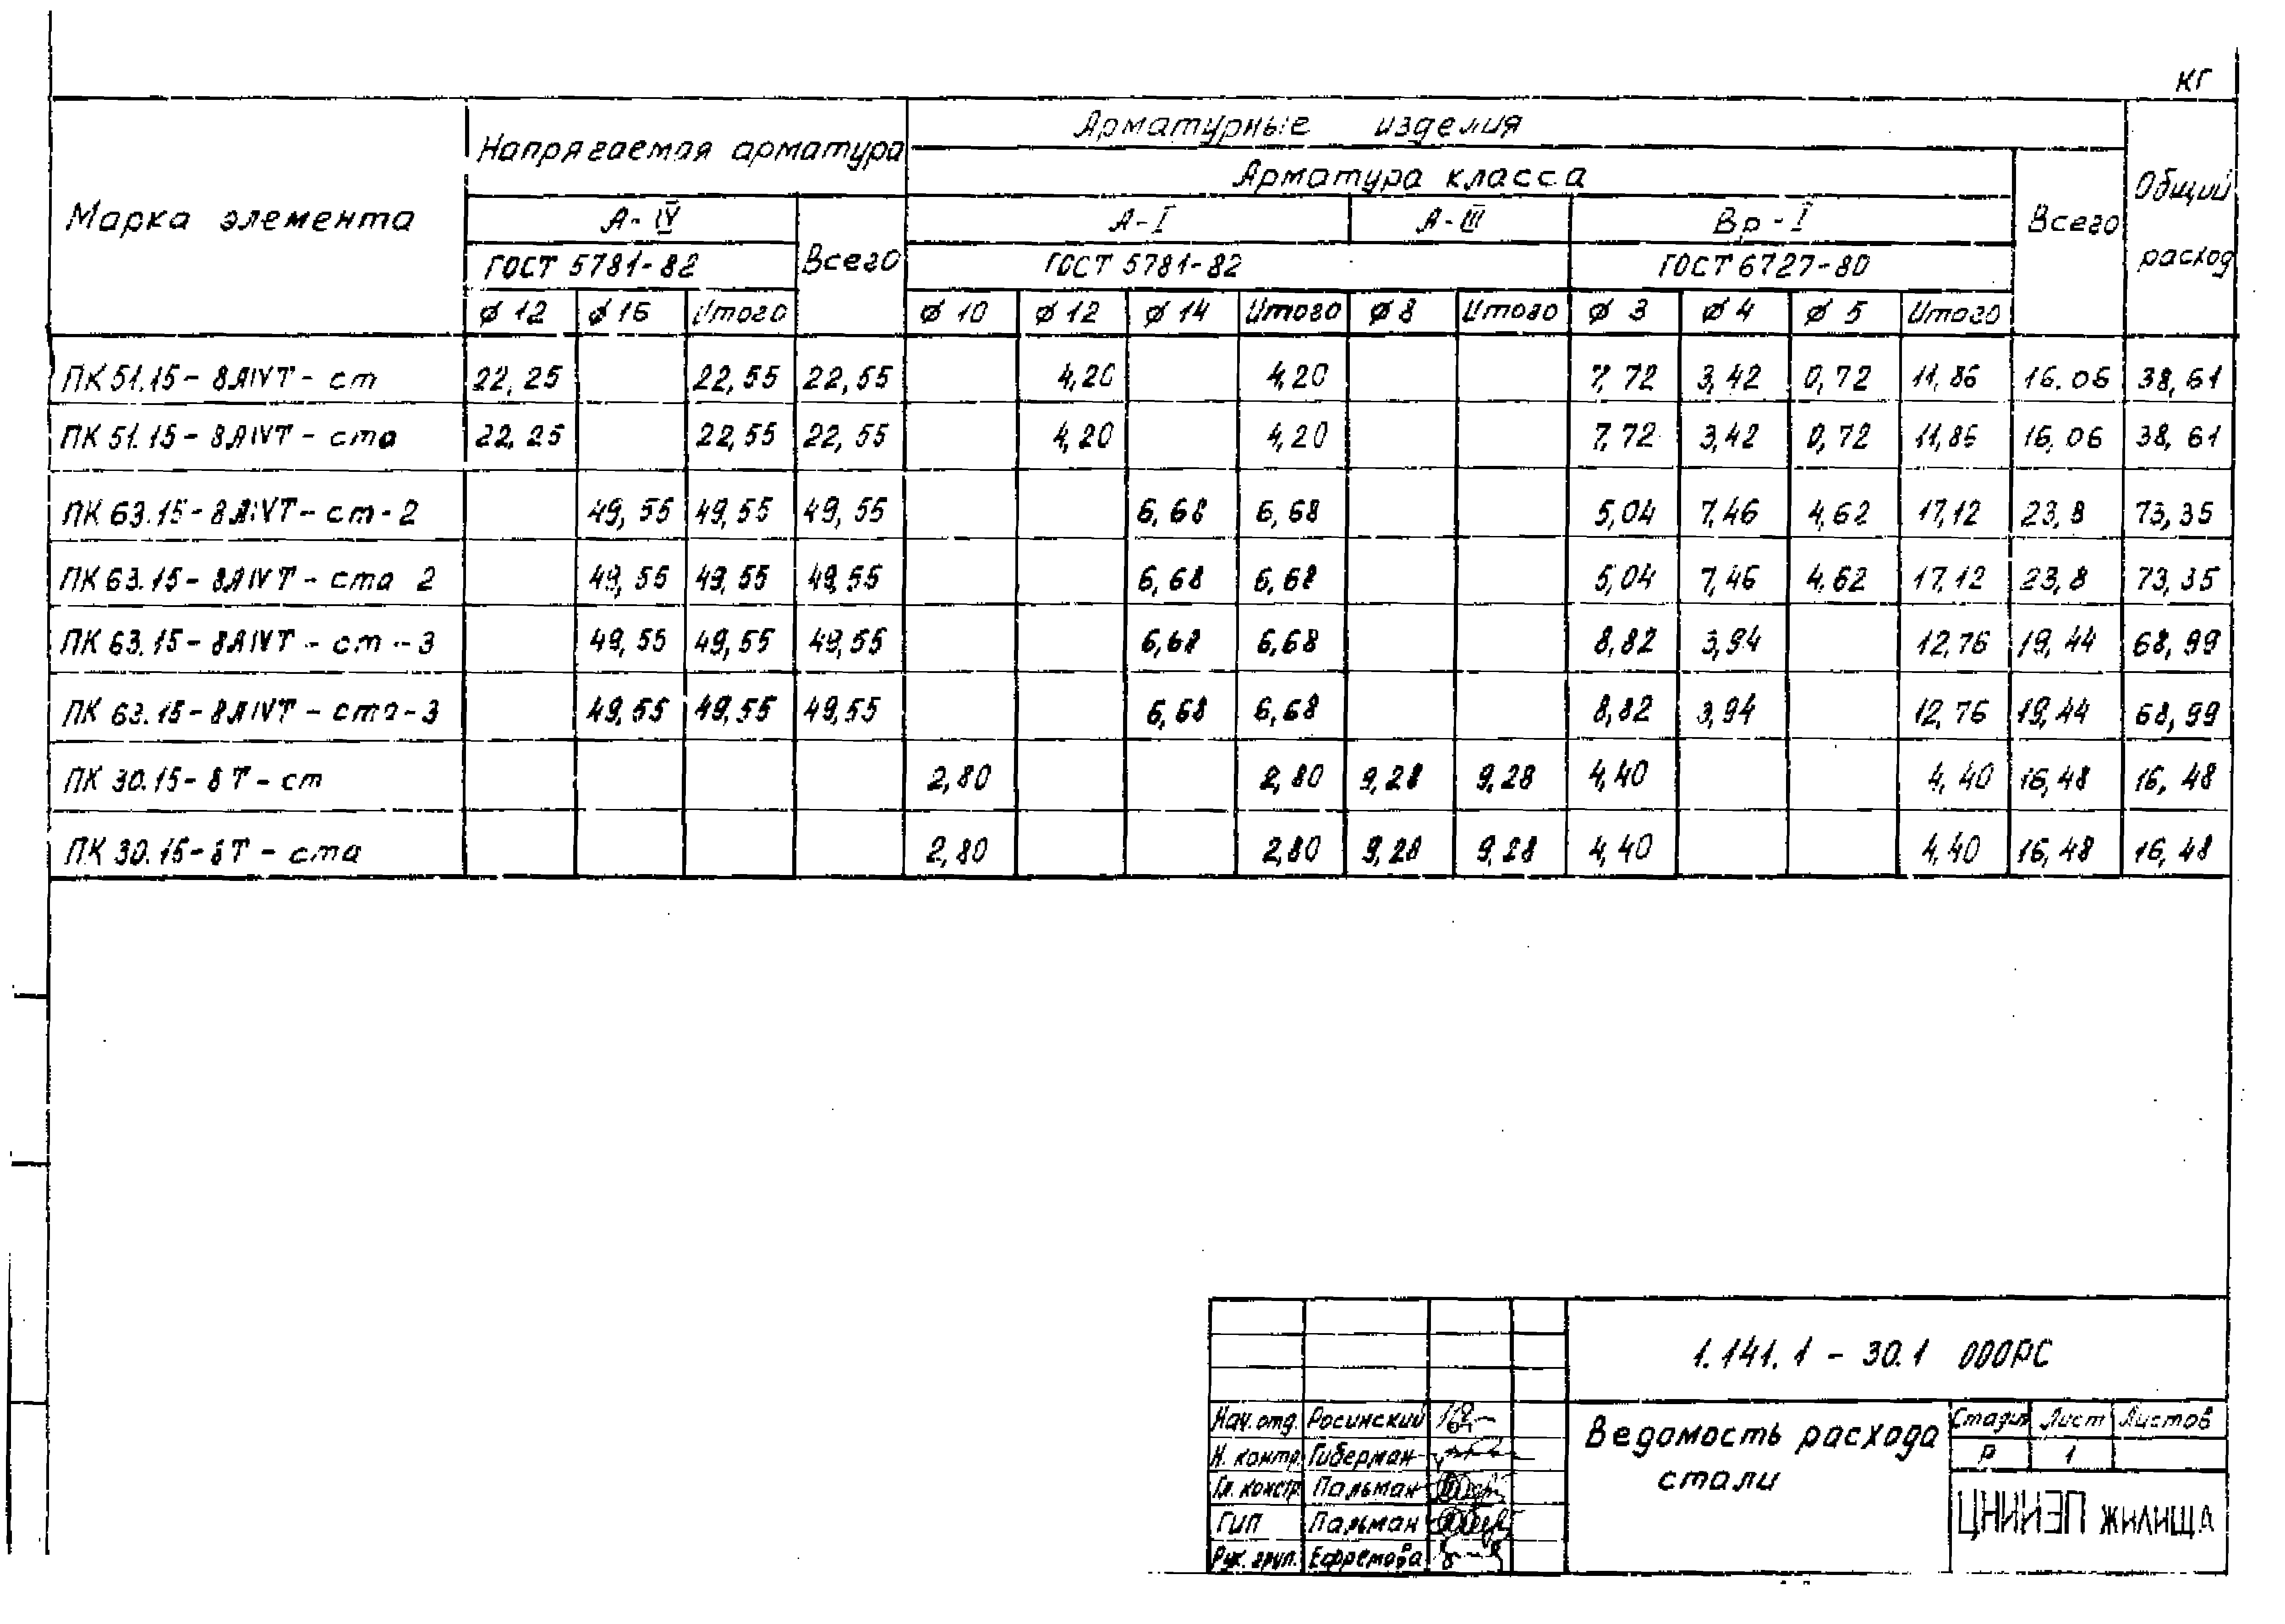 кг
Марка элемента Напрягаемая арматура Арматурные изделия Общий расход
Арматура класса Всего
А-IV Всего А-I А-III Вр-I
ГОСТ 5781-82 ГОСТ 5781-82 ГОСТ 6727-80
ø 12 ø 16 Итого ø 10 ø 12 ø 14 Итого ø 8 Итого ø 3 ø 4 ø 5 Итого
ПК 51.15-8АIVТ-ст 22,25 22,55 22,55 4,20 4,20 7,72 3,42 0,72 11,86 16.06 38,61
ПК 51.15-8АIVТ-ста 22,25 22,55 22,55 4,20 4,20 7,72 3,42 0,72 11,86 16,06 38,61
ПК 63.15-8АIVТ-ст-2 49,55 49,55 49,55 6,68 6,68 5,04 7,46 4,62 17,12 23,8 73,35
ПК 63.15-8АIVТ-ста 2 49,55 49,55 49,55 6,68 6,68 5,04 7,46 4,62 17,12 23,8 73,35
ПК 63.15-8АIVТ-ст-3 49,55 49,55 49,55 6,68 6,68 8,82 3,94 12,76 19,44 68,99
ПК 63.15-8АIVТ-ста-3 49,55 49,55 49,55 6,68 6,68 8,82 3,94 12,76 19,44 68,99
ПК 30.15-8Т-ст 2,80 2,80 9,28 9,28 4,40 4,40 16,48 16,48
ПК 30.15-8Т-ста 2,80 2,80 9,28 9,28 4,40 4,40 16,48 16,48
1.141.1-30.1 000РС
Нач. отд. Росинский
Н. контр. Гиберман
Гл. констр Пальман
ГИП Пальман
Рук. груп. Ефремова
Ведомость расхода
стали
Стадия Лист Листов
Р 1
ЦНИИЭП жилища